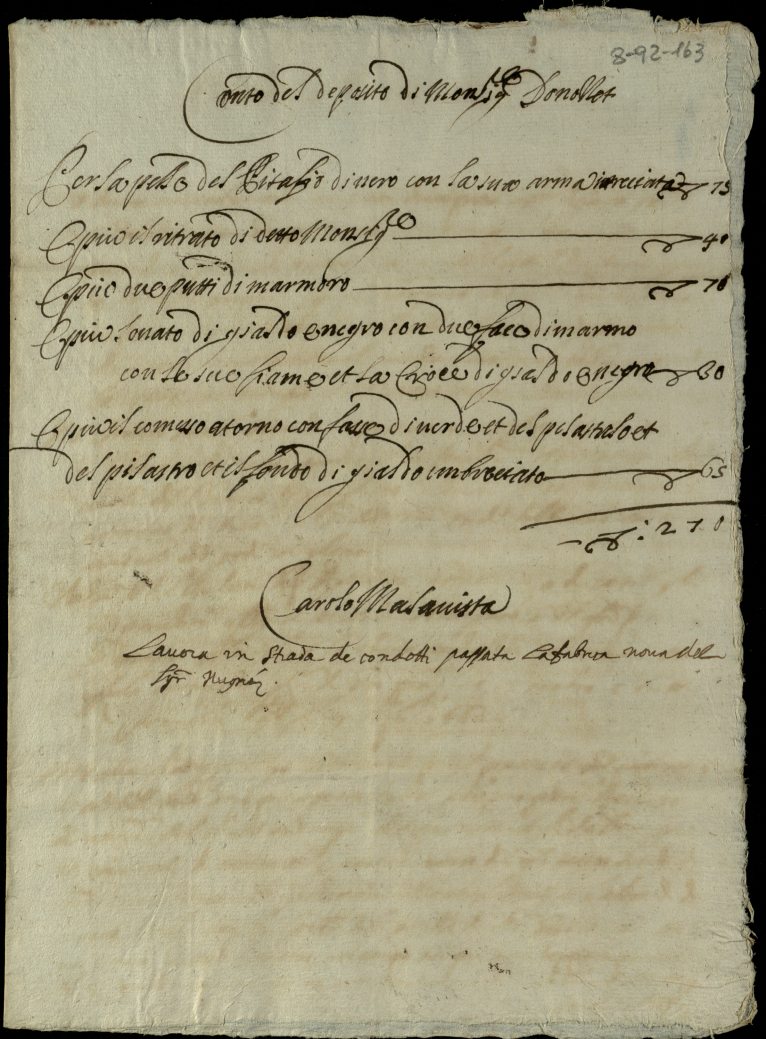 8-92-163
Conto del deposito di Monsig.re Donollot
Per la pelle del Pitafio di nero con la sua arma 75
E piu il ritrato di detto Monsig.re 40
E piu due putti di marmoro 70
E piu l ouato di gialdo e negro con due face di marmo
con le sue fiame et la Croce di gialdo e negro
E piu il comesso atorno con fasse di uerde et del pilastrelo et
del pilastro et il fondo di gialdo umbreciato 65
270
Carolo Malauista
Lauora in strada de condotti passata la fabrica noua del
Sig.r